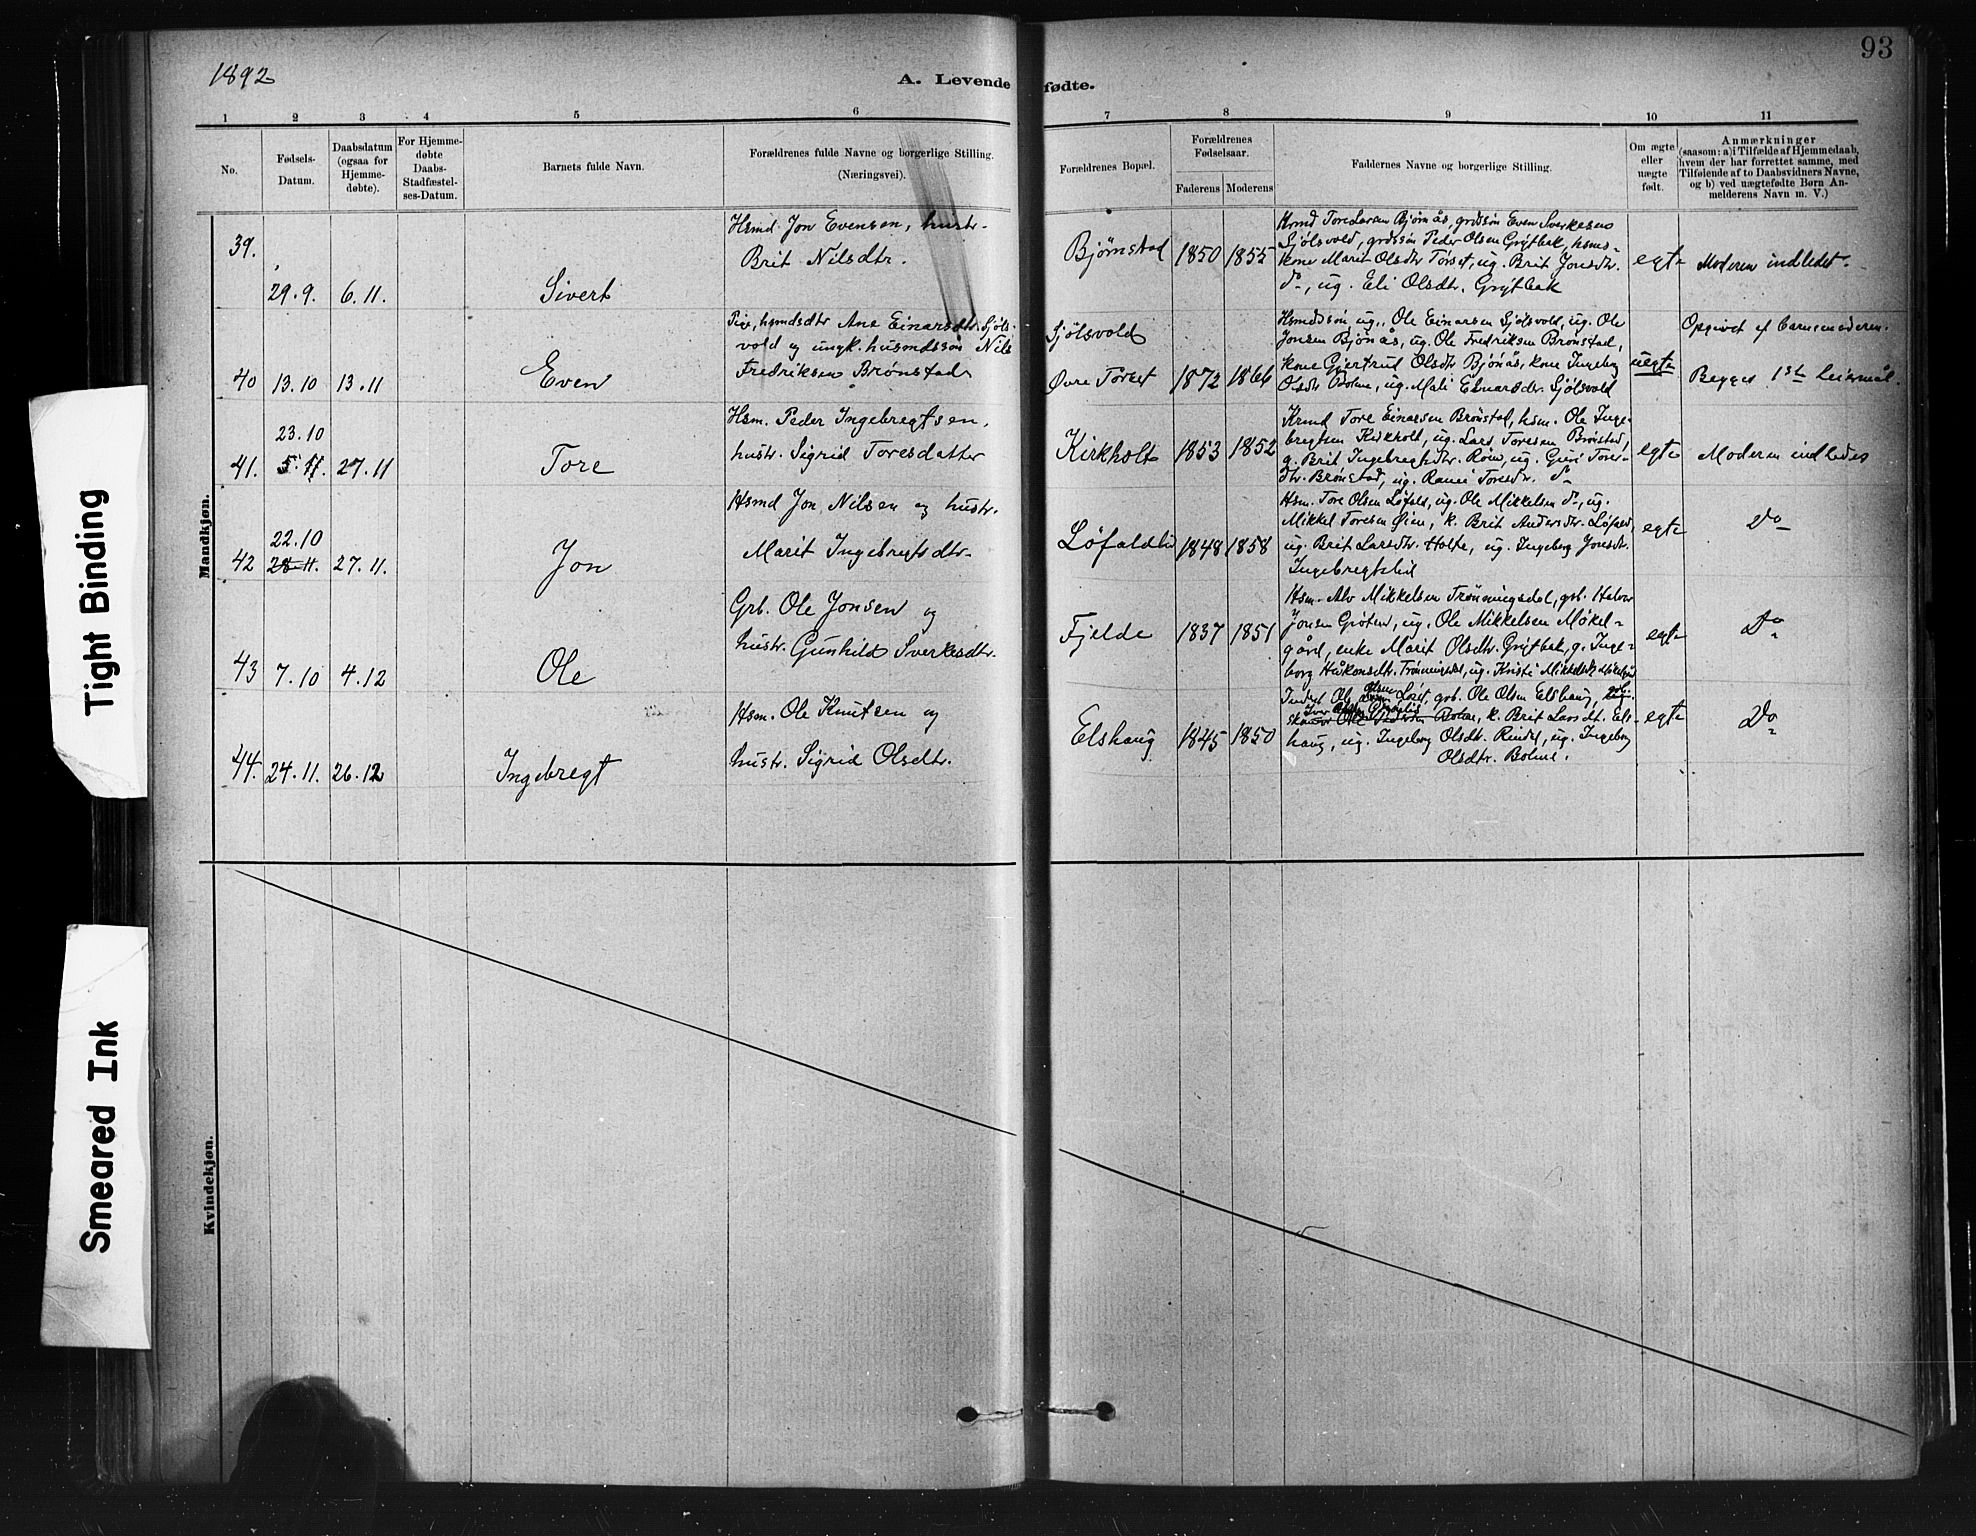 1892
93
A. Levende fødte.
1 2 3 4 5 6 7 8 9 10 11
No.
Fødsels-
Datum.
Daabsdatum
(ogsaa for
Hjemme-
døbte).
For Hjemme-
døbte
Daabs-
Stadfæstel-
ses-Datum.
Barnets fulde Navn.
Forældrenes fulde Navne og borgerlige Stilling.
(Næringsvei).
Forældrenes Bopæl.
Forældrenes
Fødselsaar.
Faderens Moderens
Faddernes Navne og borgerlige Stilling.
Om ægte
eller
uægte
født.
Anmærkninger
(saasom: a) i Tilfælde af Hjemmedaab,
hvem der har forrettet samme, med
Tilføiende af to Daabsvidners Navne,
og b) ved uægtefødte Børn An-
melderens Navn m. V.)
Mandkjøn.
39.
29.9. 6.11.
Sivert
Hsmd Jon Evensen, hustr.
Brit Nilsdtr.
Bjørnstad 1850 1855
Hsmd Tore Larsen Bjørnås, grdsøn Even Sverkesens
Sjølsvold, grdssøn Peder Olsen Grytbak, hsms-
kone Marit Olsdtr Tørset, ug. Brit Jonsdtr.
do, ug. Eli Olsdtr. Grytbak
egte
Moderen indledet.
40 13.10 13.11
Even
Pige, hsmdsdtr Ane Einarsdtr. Sjøls-
vold og ungk. husmdssøn Nils
Fredriksen Brønstad
Sjølsvold
Øvre Tørset 1872 1866
Hsmdssøn ug. Ole Einarsen Sjølsvold, ug. Ole
Jonsen Bjønås, ug. Ole Fredriksen Brønstad,
kone Gjertrud Olsdtr Bjønås, kone Ingeborg
Olsdtr Bolme, ug. Mali Einarsdtr. Sjølsvold
uegte
Opgivet af barnemoderen.
Begges 1ste leiermål.
23.10
41. 5.11. 27.11
Tore
Hsm. Peder Ingebregtsen,
hustr. Sigrid Toresdatter
Kirkholt 1853 1852
Tore Einarsen Brønstad, hsm. Ole Inge-
bregtsen Kirkholt, ug. Lars Toresen Brønstad,
g. Brit Ingebregtsdtr. Røen, ug. Guri Tores-
dtr. Brønstad, ug. Toresdr. do
egte
Moderen indledes
22.10
42 28.11. 27.11.
Jon
Hsmd Jon Nilsen og hustr.
Marit Ingebregtsdtr.
Løfaldli 1848 1858
Hsm. Tore Olsen Løfald, ug. Ole Mikkelsen do, ug.
Mikkel Toresen Øien, k. Brit Andersdtr. Løfald,
ug. Brit Larsdtr. Holte, ug. Ingeborg Jonsdtr.
Ingebregtslid
egte
Do
43 7.10 4.12
Ole
Grb. Ole Jonsen og
hustr. Gunhild Sverkesdtr.
Fjelde 1837 1851
Hsm. Alv Mikkelsen Trønningsdal, grb. Halvor
Jonsen Grøten, ug. Ole Mikkelsen Møkel-
gård, enke Marit Olsdtr. Grytbak, g. Inge-
borg Håkonsdtr. Trønningsdal, ug. Kristi
egte
Do
44. 24.11. 26.12
Ingebregt
Hsm. Ole Knutsen og
hustr. Sigrid Olsdtr.
Elshaug 1845 1850
Ole Olsen grb. Ole Olsen Elshaug,
Iver
k. Brit Larsdt. Els-
haug, ug. Ingeborg Olsdtr. Rindal, ug. Ingeborg
Olsdtr. Bolme.
egte
Do
Kvindekjøn.
Tight Binding
Smeared Ink